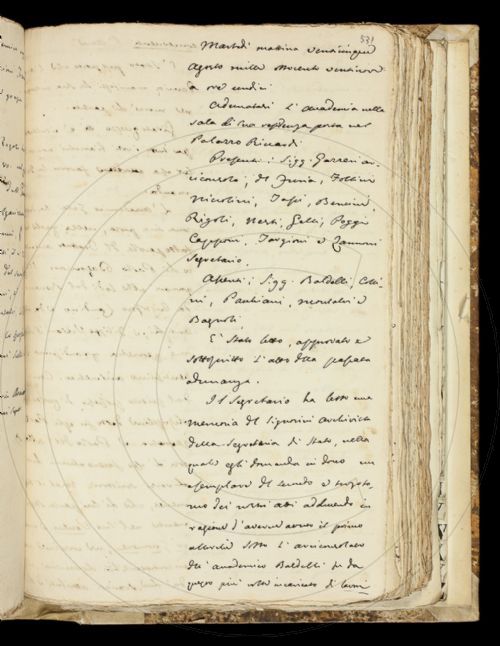 531
Martedì mattina venticinque
Agosto mille ottocento ventinove
a ore undici
Adunatasi l'Accademia nella
sala di sua residenza posta nel
Palazzo Riccardi
Presenti i Sigg. Zannoni
arciconsolo, Del Furia, Follini
Niccolini, Bencini
Rigoli, Nesti, Gelli, Poggi
Capponi, Targioni e Zannoni
Segretario.
Assenti i Sigg. Baldelli, Colli-
ni, Pauliani, Montalvi e
Bagnoli
È stato letto, approvato e
sottoscritto l'atto della passata
adunanza.
Il Segretario ha letto una
memoria del Signorini Archivista
della Segreteria di Stato, nella
quale egli domanda in dono un
esemplare del secondo e terzo to-
mo dei nostri atti adducendo in
ragione d'averne avuto il primo
allorché sotto l'arciconsolato
dei accademico Baldelli fu da
questo più volte incaricato di